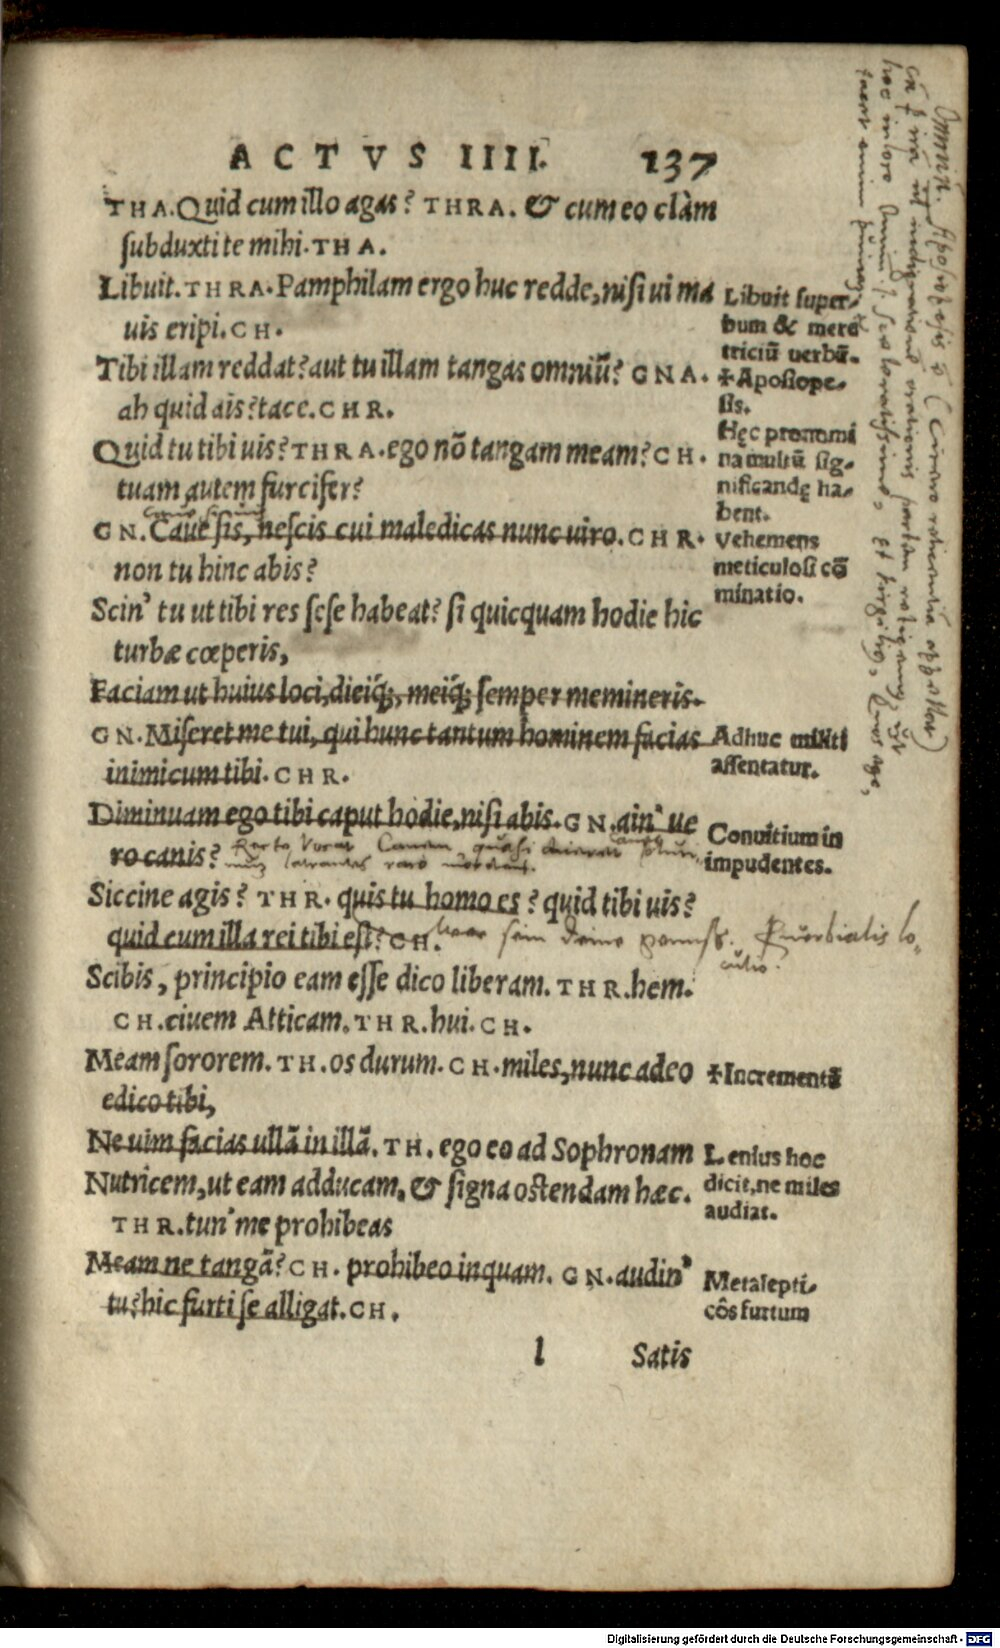 ACTVS IIII. 137
THA. Quid cum illo agas? THRA. & cum eo clàm
subduxti te mihi. THA.
Libuit. THRA. Pamphilam ergo huc redde, nisi ui ma
uis eripi. CH.
Tibi illam reddat? aut tu illam tangas omniũ? GNA.
ah quid ais? tace. CHR.
Quid tu tibi uis? THRA. ego nõ tangam meam? CH.
tuam autem furcifer?
GN. Caue sis, nescis cui maledicas nunc uiro. CHR.
non tu hinc abis?
Scin' tu ut tibi res sese habeat? si quicquam hodie hic
turbæ cœperis,
Faciam ut huius loci, dieiq́;, meiq́; semper memineris.
GN. Miseret me tui, qui hunc tantum hominem facias
inimicum tibi. CHR.
Diminuam ego tibi caput hodie, nisi abis. GN. ain' ue
ro canis?
Siccine agis? THR. quis tu homo es? quid tibi uis?
quid cum illa rei tibi est? CH.
Scibis, principio eam esse dico liberam. THR. hem.
CH. ciuem Atticam. THR. hui. CH.
Meam sororem. TH. os durum. CH. miles, nunc adeo
edico tibi,
Ne uim facias ullã in illã. TH. ego eo ad Sophronam
Nutricem, ut eam adducam, & signa ostendam hæc.
THR. tun' me prohibeas
Meam ne tangã? CH. prohibeo inquam. GN. audin'
tu? hic furti se alligat. CH.
l Satis
Libuit super-
bum & mere
triciũ uerbũ.
✝Aposiope-
sis.
Hęc pronomi
na multũ sig-
nificandę ha-
bent.
Vehemens
meticulosi cõ
minatio.
Adhuc militi
assentatur.
Conuitium in
impudentes.
✝Incrementũ
Lenius hoc
dicit, ne miles
audiat.
Metalepti-
côs furtum
Recte vocat Canem quasi
latrantes raro mordent.
Prouerbialis lo-
cutio.
Digitalisierung gefördert durch die Deutsche Forschungsgemeinschaft - DFG